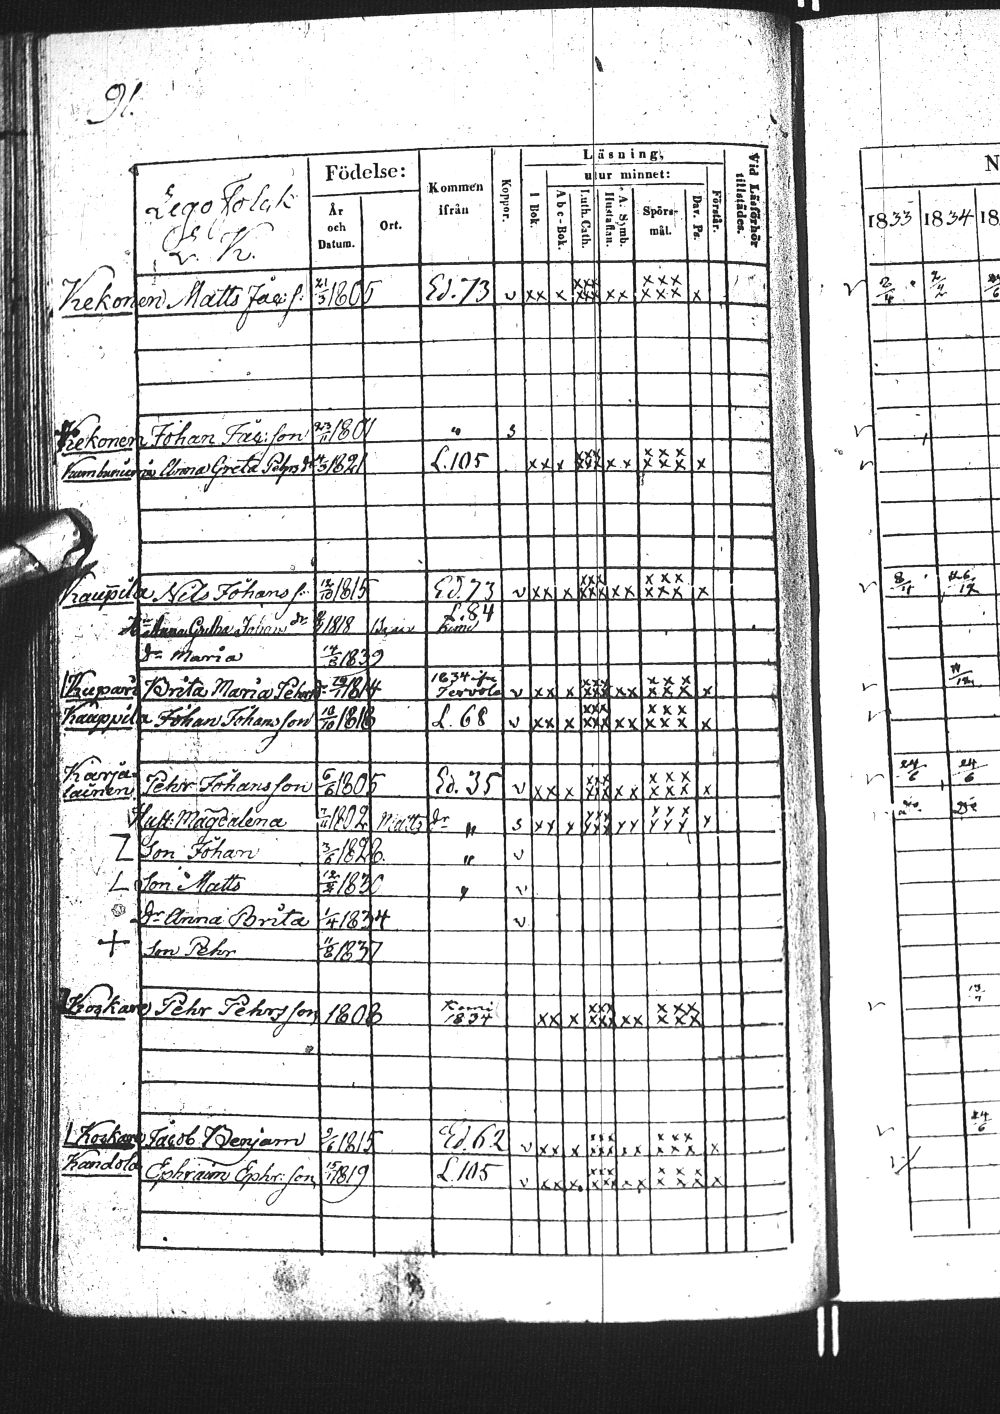 91.
Lego Folck
L. K.
Födelse:
År och Datum.
Ort.
Kommen ifrån
Koppor.
Läsning,
utur minnet:
I Bok.
Abc-Bok.
Luth. Cath.
Hustaflan.
A. Symb.
Spörs-mål.
Dav. Ps.
Förstår.
Vid Läsförhör tillstädes.
N
1833 1834 18
Kekonen Matts Jac: s. 21/3 1805 Ed. 73 v xx x xxx xxx xx xxx xxx x v 2/4
Kekonen Johan Jac: son 23/11 1801 " s
Anna Greta Pehrs dr 1821 L. 105 xx x xxx xxx xx xxx xxx x
Kauppila Nils Johans s. 12/10 1815 Ed. 73 v xx x xxx xxx xx xxx xxx x v 8/4
Anna Gretha Johans dr 1818 L. 84 Kimi
dr Maria 14/3 1839
Kupari Brita Maria Pehrs dr 1814 1834 ifr Tervola v xx x xxx xxx xx xxx xxx x
Kauppila Johan Johansson 18/10 1818 L. 68 v xx x xxx xxx xx xxx xxx x
Karja-
lainen Pehr Johansson 6/6 1805 Ed. 35 v xx x xxx xxx xx xxx xxx x 24/6 24/6
Hust: Magdalena 7/11 1802 Matts dr " s
Son Johan 3/6 1828 " v
Son Matts 1830 " v
dr Anna Brita 1/4 1834 v
+ Son Pehr 11/8 1837
Koskare Pehr Pehrsson 1808 Kemi 1834 xx x xxx xxx xx xxx xxx 13/7
Koskare Jacob Benjam 9/6 1815 Ed. 62 v xx x xxx xxx xx xxx xxx x 24/6
Kandola Ephraim Ephr: son 1819 L. 105 v xx x xxx xxx xx xxx xxx x